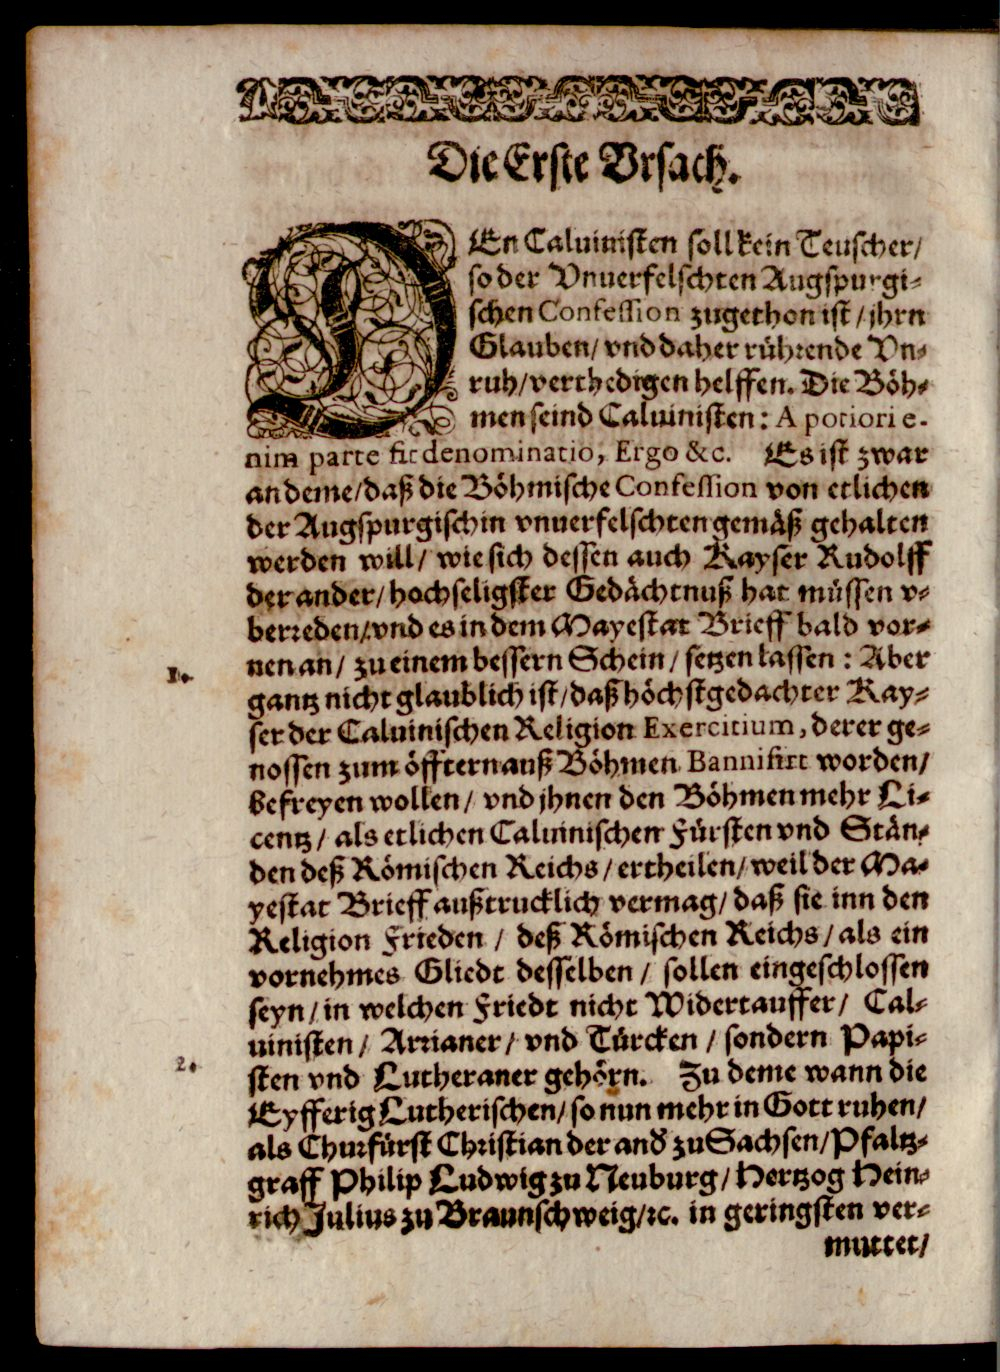 Die Erste Vrsach.
DEn Caluinisten soll kein Teuscher/
so der Vnuerfelschten Augspurgi⸗
schen Confession zugethon ist / jhrn
Glauben/ vnd daher rührende Vn⸗
ruh/verthedigen helffen. Die Böh⸗
men seind Caluinisten: A potiori e-
nim parte fit denominatio, Ergo &c. Es ist zwar
an deme/daß die Böhmische Confession von etlichen
der Augspurgischin vnuerfelschten gemäß gehalten
werden will/ wie sich dessen auch Kayser Rudolff
der ander/ hochseligster Gedächtnuß hat müssen v⸗
berreden/vnd es in dem Mayestat Brieff bald vor⸗
1. nen an/ zu einem bessern Schein / setzen lassen : Aber
gantz nicht glaublich ist/daß höchstgedachter Kay⸗
ser der Caluinischen Religion Exercitium, derer ge⸗
nossen zum öfftern auß Böhmen Bannifirt worden/
befreyen wollen/ vnd jhnen den Böhmen mehr Li⸗
centz/ als etlichen Caluinischen Fürsten vnd Stän⸗
den deß Römischen Reichs / ertheilen/ weil der Ma⸗
yestat Brieff außtrucklich vermag/ daß sie inn den
Religion Frieden / deß Römischen Reichs/ als ein
vornehmes Gliedt desselben / sollen eingeschlossen
seyn / in welchen Friedt nicht Widertauffer/ Cal⸗
uinisten / Arrianer/ vnd Türcken / sondern Papi⸗
2. sten vnd Lutheraner gehörn. Zu deme wann die
Eyfferig Lutherischen/ so nun mehr in Gott ruhen/
als Churfürst Christian der and̕ zu Sachsen/Pfaltz⸗
graff Philip Ludwig zu Neuburg/ Hertzog Hein⸗
rich Julius zu Braunschweig/ꝛc. in geringsten ver⸗
muttet/